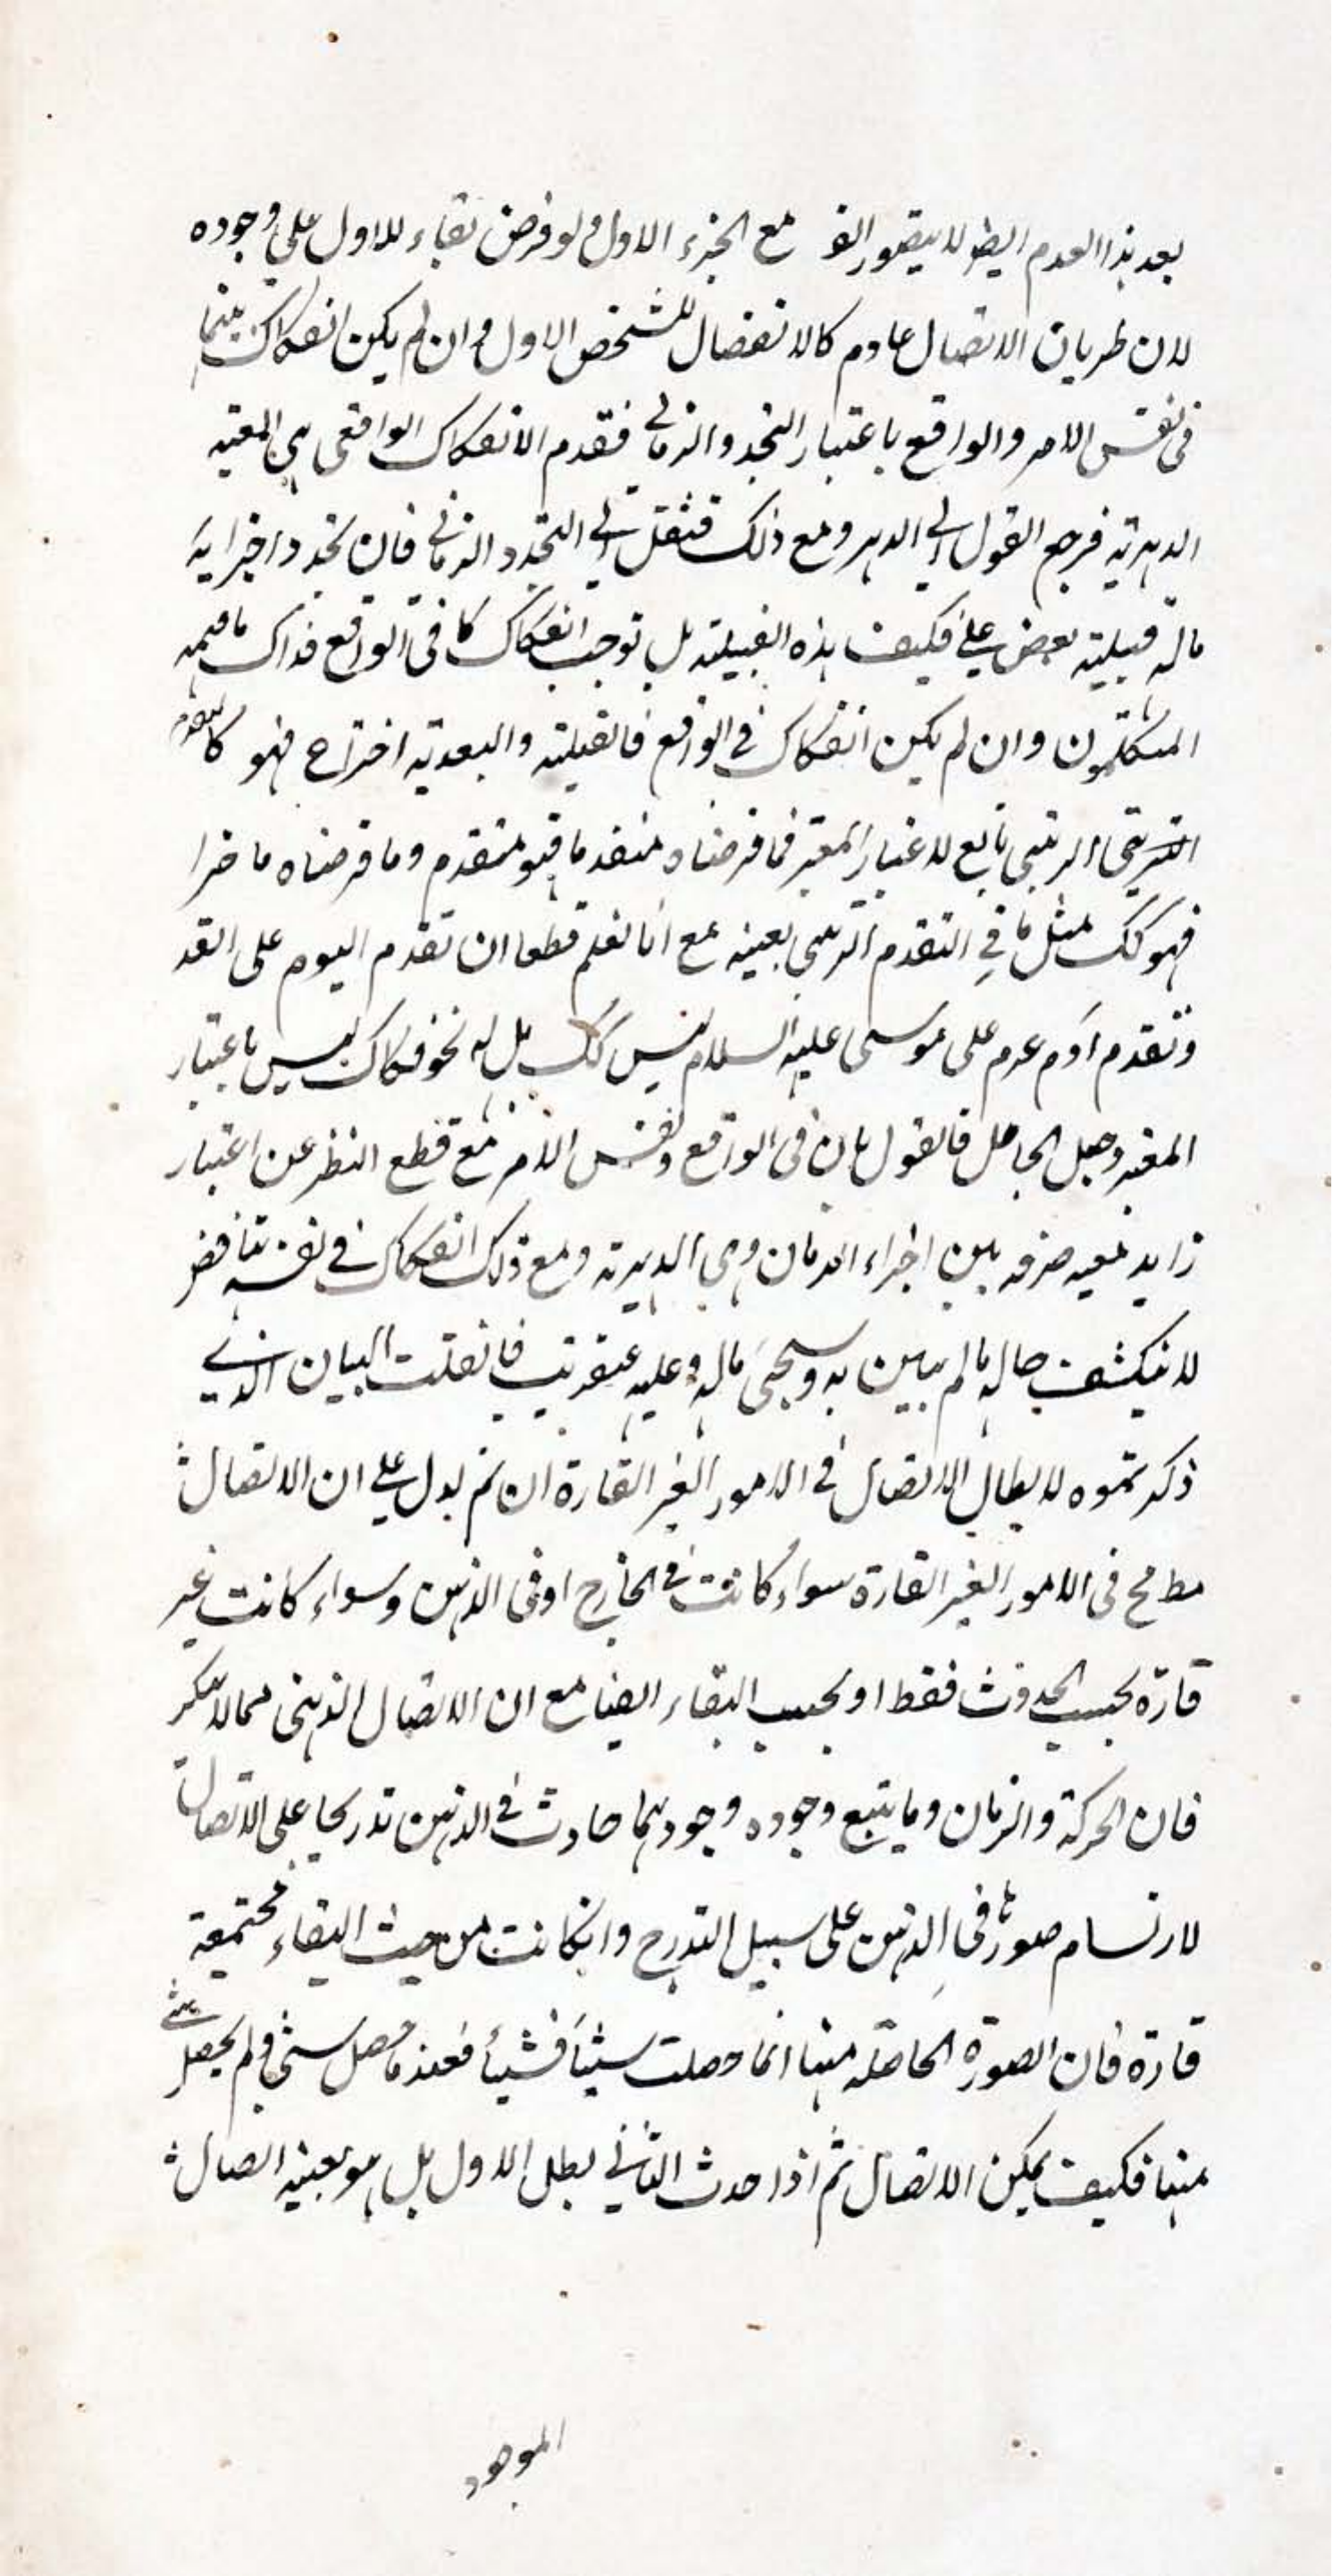 بعد هذا العدم ايضا لا يتصور الغ مع الجزء الاول ولو فرض بقاء للاول على وجوده
لان طريان الاتصال عادم كالانفصال للشخص الاول وان لم يكن انفكاك بينهما
فى نفس الامر والواقع باعتبار التجدد الزمانى فتقدم الانفكاك الواقعى هى المعية
الدهرية فرجع القول الى الدهر ومع ذلك فننقل الى التجدد الزمانى فان تجدد اجزايه
ماله قبلية بعض على فكيف هذه القبيلية بل توجب انفكاكا فى الواقع فذاك ما فهمه
المتكلمون وان لم يكن انفكاك فى الواقع فالقبلية والبعدية اختراع فهو كالتقدم
الرتبى تابع لاعتبار المعتبر فما فرضناه متقدما فهو متقدم وما فرضناه ماخرا
فهو كك مثل ما فى التقدم الرتبى بعينه مع انا نعلم قطعا ان تقدم اليوم على الغد
وتقدم آدم عم على موسى عليه السلام ليس كك بل له نحو فكاك ليس باعتبار
المعتبر وجعل الجاعل فالقول بان فى الواقع ونفس الامر مع قطع النظر عن اعتبار
زايد معية صرفة بين اجزاء الزمان وهى الدهرية ومع ذلك انفكاك فى نفسه تناقض
لا ينكشف حاله ما لم يباين به وسيجئ ماله وعليه عنقريب فانقلت البيان الذى
ذكرتموه لابطال الاتصال فى الامور الغير القارة ان تم لدل على ان الاتصال
مط مح فى الامور الغير القارة سواء كانت فى الخارج او فى الذهن وسواء كانت غير
قارة بحسب الحدوث فقط او بحسب البقاء ايضا مع ان الاتصال الذهنى مما لا ينكر
فان الحركة والزمان وما يتبع وجوده وجودهما حادث فى الذهن تدريجا على الاتصال
لارتسام صورها فى الذهن على سبيل التدرج وانكانت من حيث البقاء مجتمعة
قارة فان الصورة الحاصلة منها انما حصلت شيئا فشيئا فعند ما حصل شئ ولم يحصل شئ
منها فكيف يمكن الاتصال ثم اذا حدث الثانى بطل الاول بل هو بعينه اتصال
الموجود